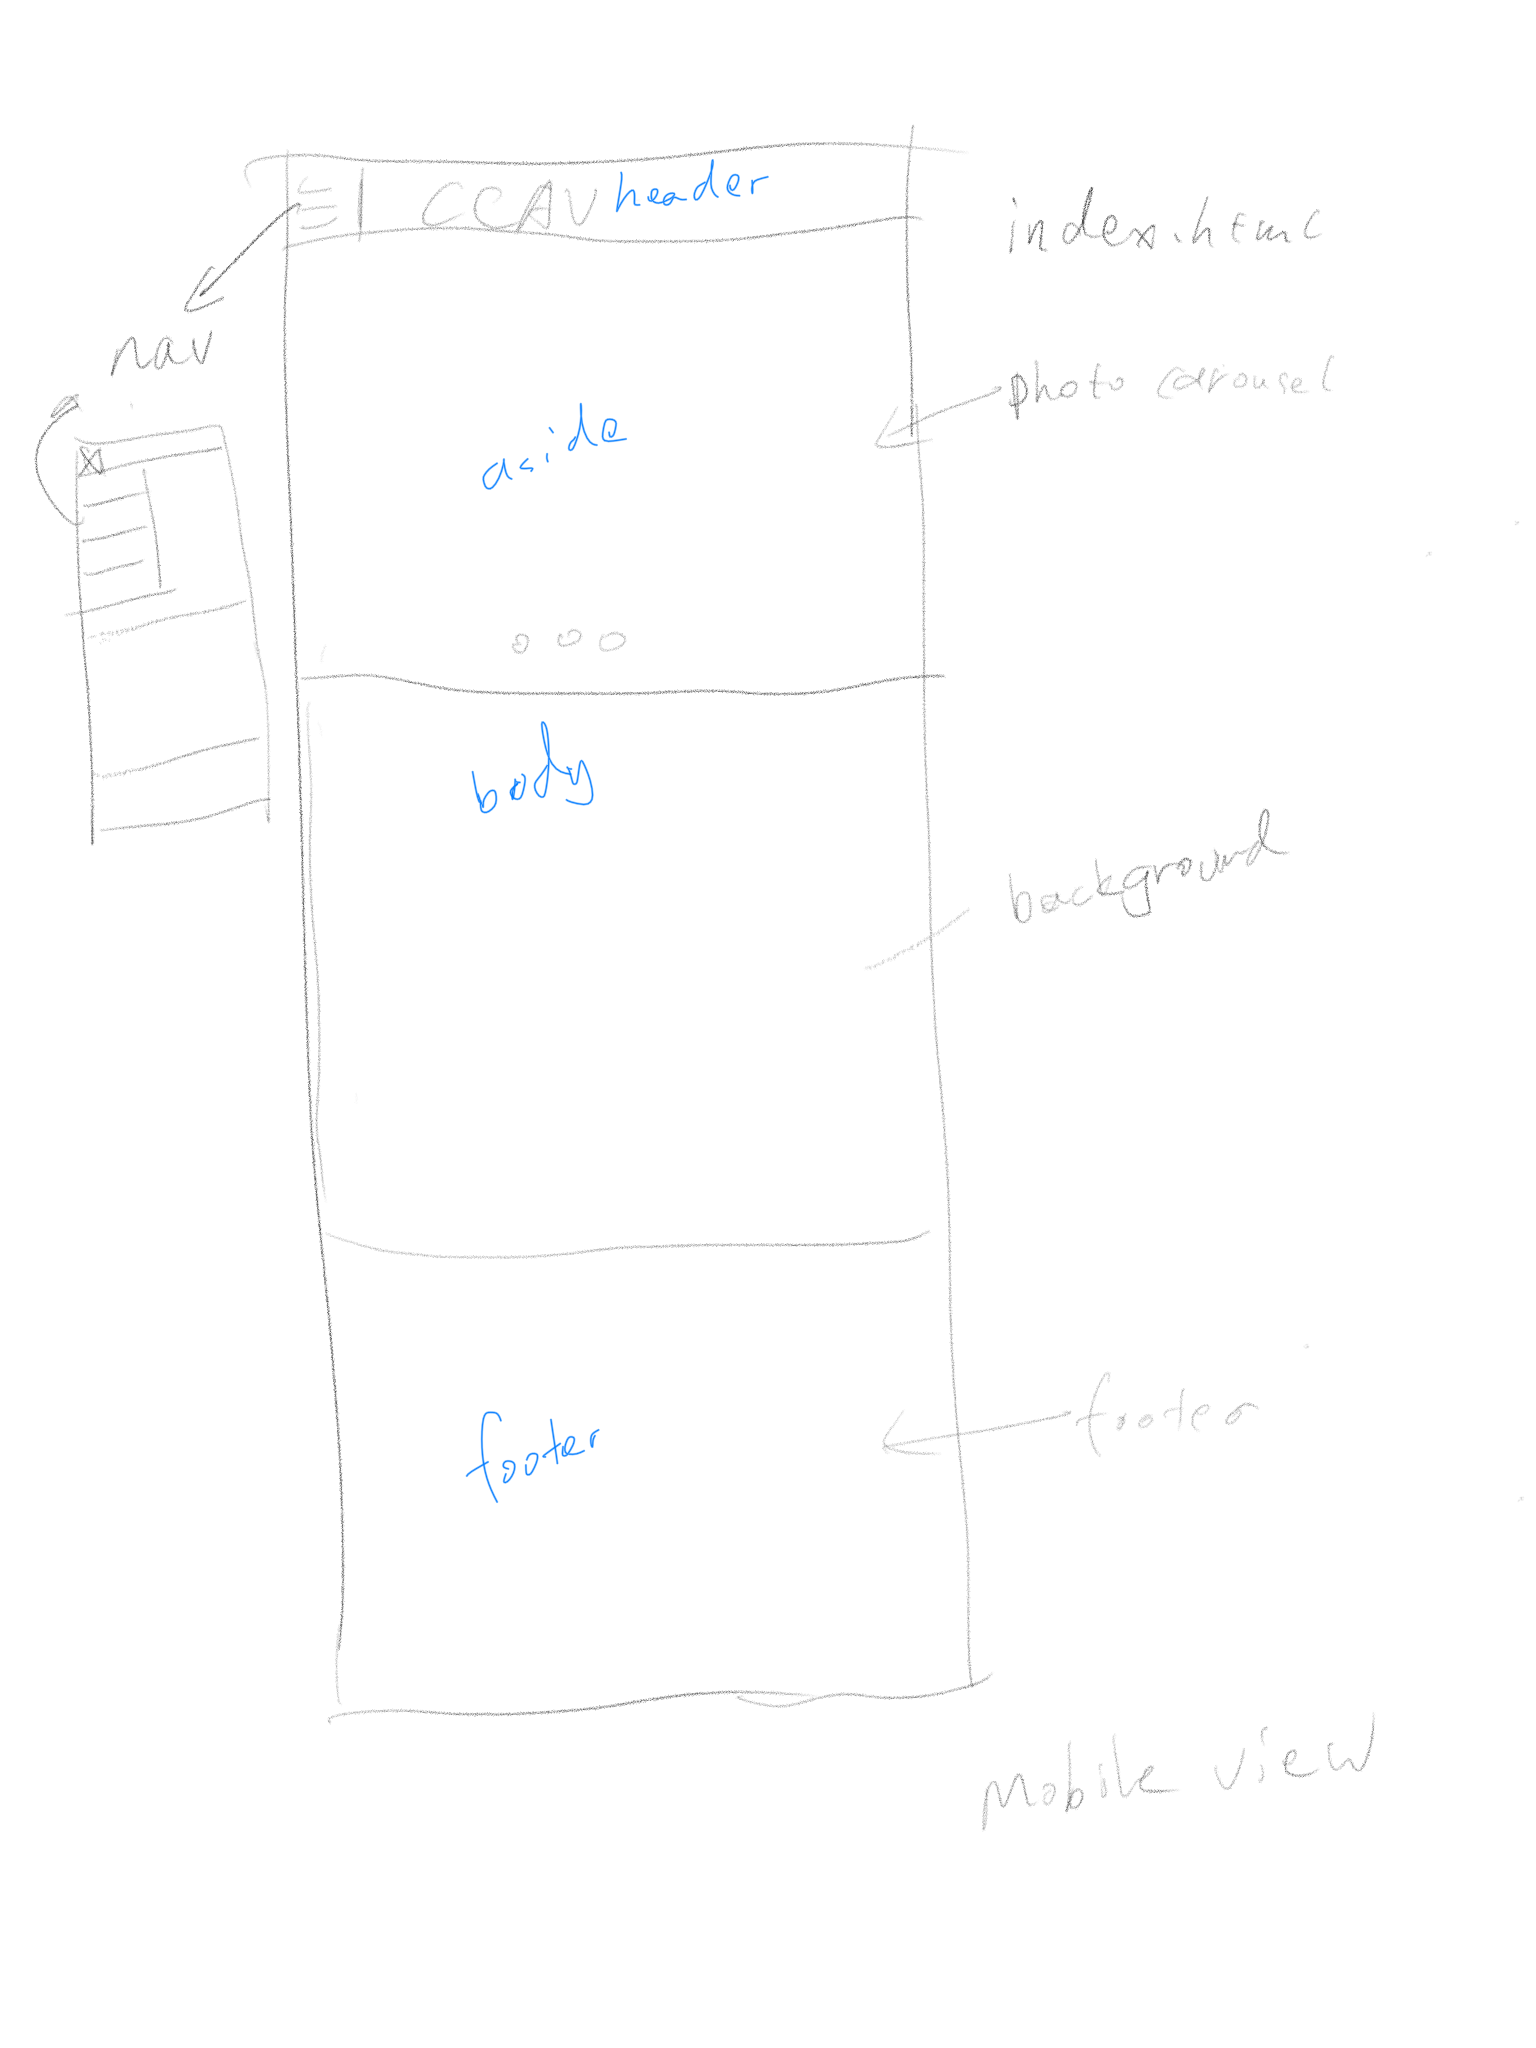 CCAV header
index.html
nav
photo carousel
aside
body
background
footer
footer
Mobile view